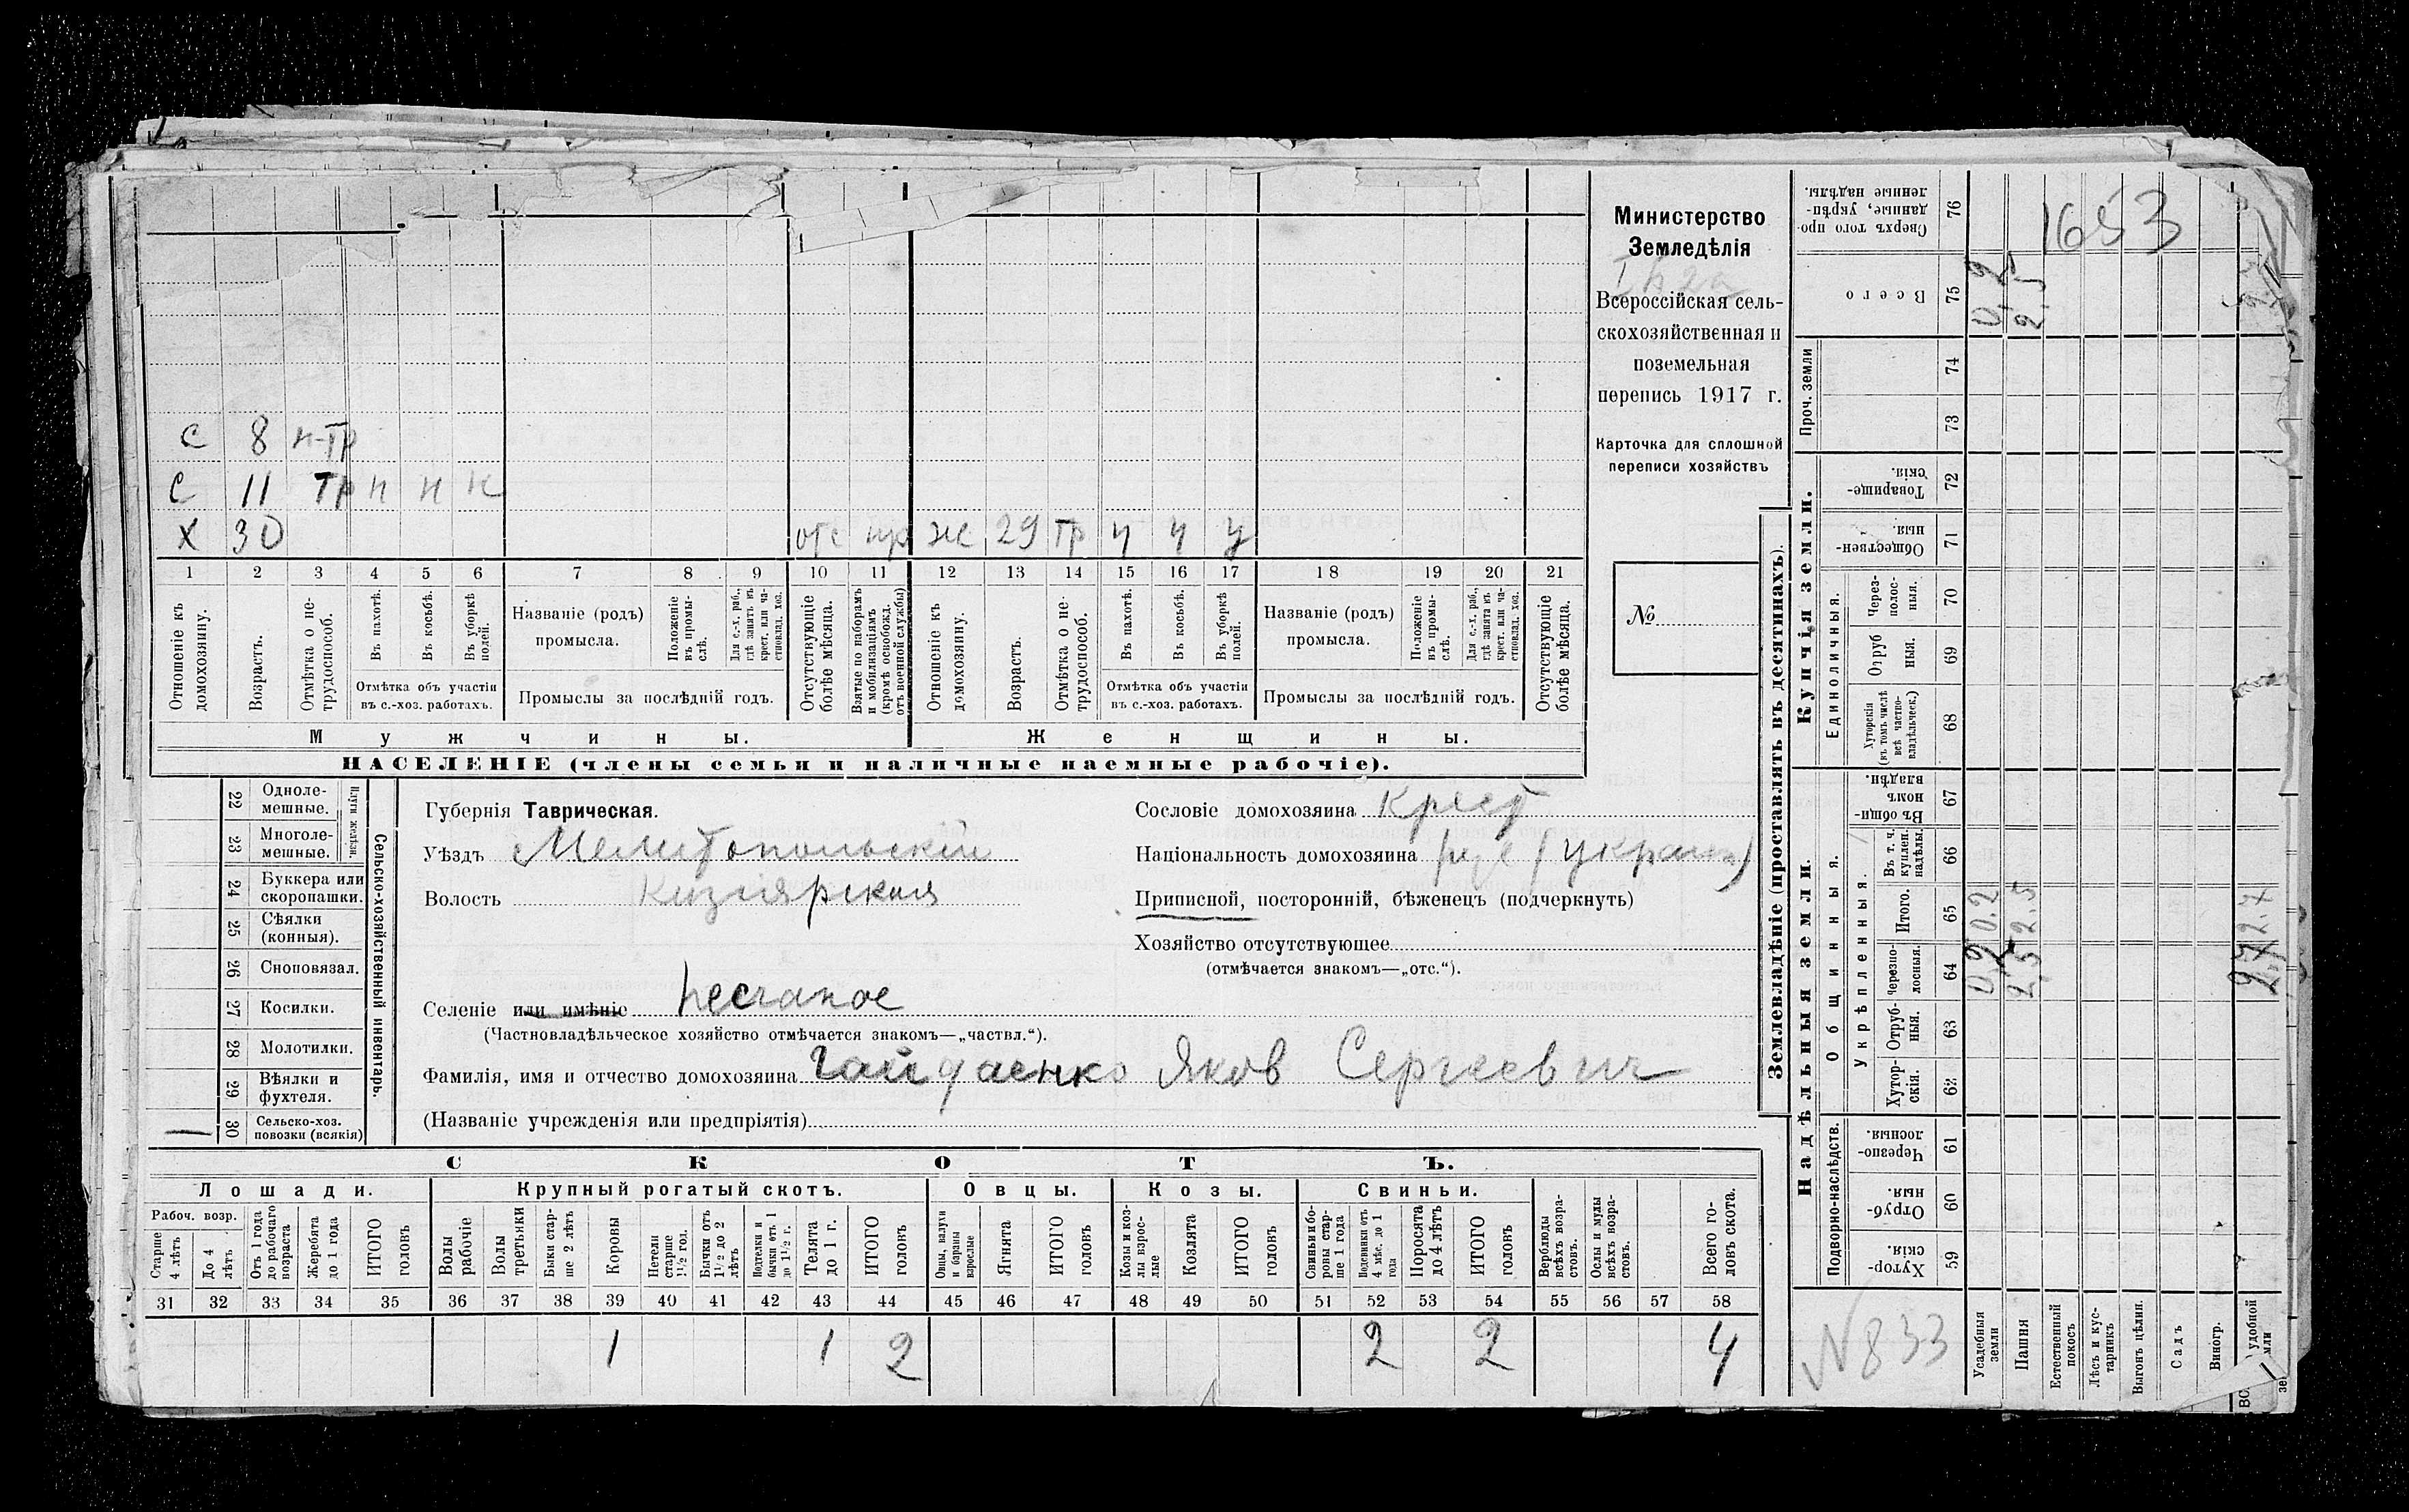 Министерство
Земледѣлія
Всероссійская сель-
скохозяйственная и
поземельная
перепись 1917 г.
Карточка для сплошной
переписи хозяйствъ
№
1653
С 8 н-тр
С 11 тр н н н
Х 30 отс ж 29 тр ч ч у
1 2 3 4 5 6 7 8 9 10 11 12 13 14 15 16 17 18 19 20 21
Отношеніе къ домохозяину.
Возрастъ.
Отмѣтка о не-трудоспособ.
Въ пахотѣ.
Въ косьбѣ.
Въ уборкѣ полей.
Отмѣтка объ участіи
въ с.-хоз. работахъ.
Названіе (родъ)
промысла.
Положеніе въ промы-слѣ.
Для с.-х. раб., гдѣ занятъ въ крест. или ча-стновлад. хоз.
Промыслы за послѣдній годъ.
Отсутствующіе болѣе мѣсяца.
Взятые по наборамъ и мобилизаціямъ (кромѣ освобожд. отъ военной службы)
Отношеніе къ домохозяину.
Возрастъ.
Отмѣтка о не-трудоспособ.
Въ пахотѣ.
Въ косьбѣ.
Въ уборкѣ полей.
Отмѣтка объ участіи
въ с.-хоз. работахъ.
Названіе (родъ)
промысла.
Положеніе въ промы-слѣ.
Для с.-х. раб., гдѣ занята въ крест. или ча-стновлад. хоз.
Промыслы за послѣдній годъ.
Отсутствующіе болѣе мѣсяца.
Мужчины. Женщины.
НАСЕЛЕНІЕ (члены семьи и наличные наемные рабочіе).
22 Одноле-мешные.
23 Многоле-мешные.
Плуги желѣзн.
24 Буккера или скоропашки.
25 Сѣялки (конныя).
26 Сноповязал.
27 Косилки.
28 Молотилки.
29 Вѣялки и фухтеля.
1 30 Сельско-хоз. повозки (всякія)
Сельско-хозяйственный инвентарь.
Губернія Таврическая.
Уѣздъ Мелитопольскій
Волость Кизіярская
Селеніе или имѣніе Песчаное
(Частновладѣльческое хозяйство отмѣчается знакомъ—„частвл.“).
Фамилія, имя и отчество домохозяина Гайдаенко Яков Сергеевич
(Названіе учрежденія или предпріятія)
Сословіе домохозяина Крест
Національность домохозяина рус (украин)
Приписной, посторонній, бѣженецъ (подчеркнуть)
Хозяйство отсутствующее
(отмѣчается знакомъ—„отс.“).
СКОТЪ.
Лошади. Крупный рогатый скотъ. Овцы. Козы. Свиньи.
Рабоч. возр.
Старше 4 лѣтъ
До 4 лѣтъ
Отъ 1 года до рабочаго возраста
Жеребята до 1 года
ИТОГО головъ
Волы рабочіе
Волы третьяки
Быки стар-ше 2 лѣтъ
Коровы
Нетели старше 1½ год.
Бычки отъ 1½ до 2 лѣтъ
Подтелки и бычки отъ 1 до 1½ г.
Телята до 1 г.
ИТОГО головъ
Овцы, валухи и бараны взрослые
Ягнята
ИТОГО головъ
Козы и коз-лы взрос-лые
Козлята
ИТОГО головъ
Свиньи и бо-ровы стар-ше 1 года
Подсвинки отъ 4 мѣс. до 1 года
Поросята до 4 лѣтъ
ИТОГО головъ
Верблюды всѣхъ возра-стовъ.
Ослы и мулы всѣхъ возра-стовъ.
Всего го-ловъ скота.
31 32 33 34 35 36 37 38 39 40 41 42 43 44 45 46 47 48 49 50 51 52 53 54 55 56 57 58
1 1 2 2 2 4
Землевладѣніе (проставлять въ десятинахъ).
Купчія земли.
Надѣльныя земли.
Сверхъ того про-данные, укрѣп-ленные надѣлы. 76
Всего 75 0,2 2,5
Проч. земли 74 73
Товарище-скія. 72
Обществен-ныя. 71
Единоличныя.
Через-полос-ныя. 70
Отруб ныя. 69
Хуторскія (въ томъ числѣ всѣ частно-владѣльческ.) 68
Общинныя.
Въ общи-номъ владѣн. 67
Укрѣпленныя.
Въ т. ч. куплен. надѣлы. 66
Итого. 65 0.2 2.5 2.7
Черезпо-лосныя. 64 0,2 2,5 2.7
Отруб-ныя. 63
Хутор-скія. 62
Подворно-наслѣдств.
Черезпо-лосныя. 61
Отруб-ныя. 60
Хутор-скія. 59
N 833
Усадебныя земли
Пашня
Естественный покосъ
Лѣсъ и кус-тарникъ
Выгонъ цѣлин.
Садъ
Виногр.
удобной